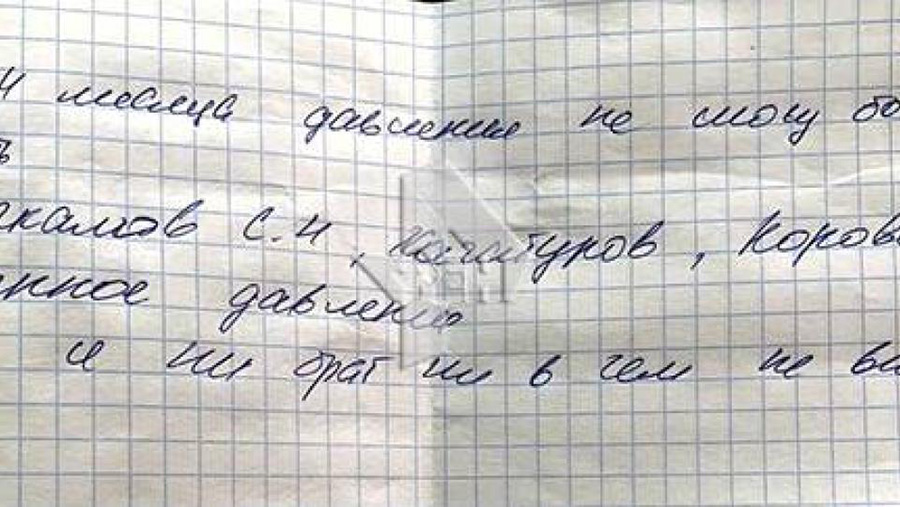 4 месяца давления не могу бо
ь
скалов С.Н, туров, Коров
нное давление
и ни брат ни в чем не ви